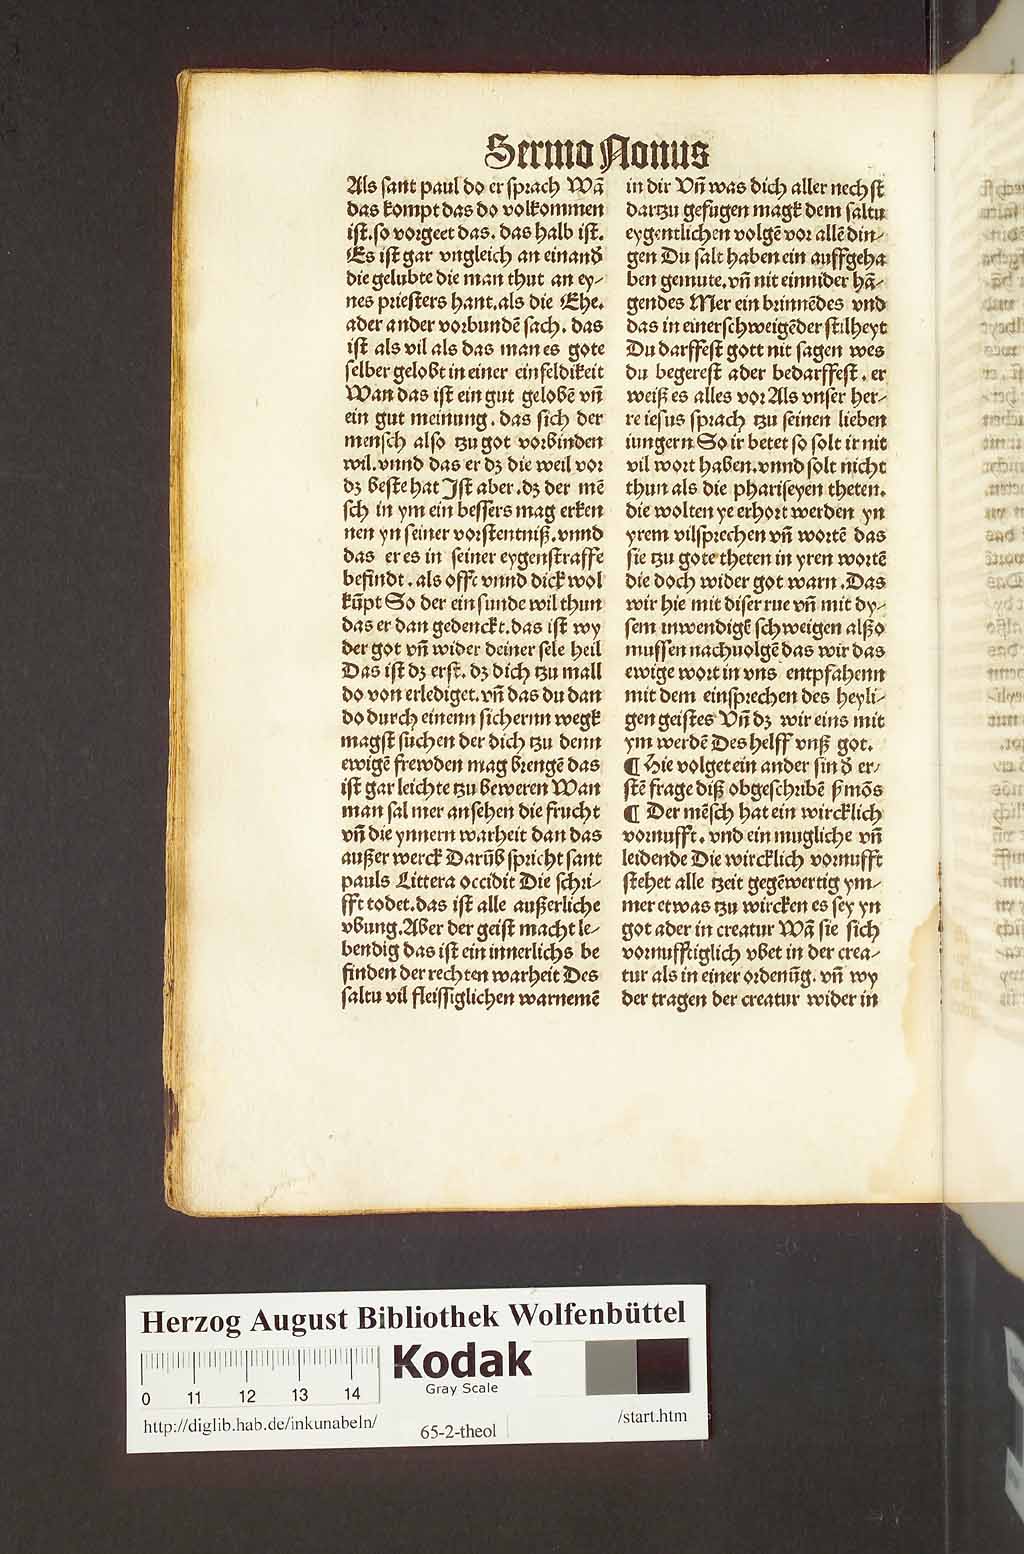 Sermo Nonus
Als sant paul do er sprach Wā
das kompt das do volkommen
ist. so vorgeet das. das halb ist.
Es ist gar vngleich an einand̄
die gelubte die man thut an ey⸗
nes priesters hant. als die Ehe.
ader ander vorbundē sach. das
ist als vil als das man es gote
selber gelobt in einer einfeldikeit
Wan das ist ein gut gelobē vn̄
ein gut meinung. das sich der
mensch also tzu got vorbinden
wil. vnnd das er dʒ die weil vor
dʒ beste hat Ist aber. dʒ der mē
sch in ym ein bessers mag erken
nen yn seiner vorstentniß. vnnd
das er es in seiner eygenstraffe
befindt. als offt vnnd dick wol
kūpt So der ein sunde wil thun
das er dan gedenckt. das ist wy
der got vn̄ wider deiner sele heil
Das ist dʒ erst. dʒ dich tzu mall
do von erlediget. vn̄ das du dan
do durch einenn sichernn wegk
magst suchen der dich tzu denn
ewigē frewden mag brengē das
ist gar leichte tzu beweren Wan
man sal mer ansehen die frucht
vn̄ die ynnern warheit dan das
außer werck Darūb spricht sant
pauls Littera occidit Die schri⸗
fft todet. das ist alle außerliche
vbung. Aber der geist macht le⸗
bendig das ist ein innerlichs be
finden der rechten warheit Des
saltu vil fleissiglichen warnemē
in dir Vn̄ was dich aller nechst
dartzu gefugen magk dem saltu
eygentlichen volgē vor allē din⸗
gen Du salt haben ein auffgeha
ben gemute. vn̄ nit einnider hā⸗
gendes Mer ein brinnēdes vnd
das in einer schweigēder stilheyt
Du darffest gott nit sagen wes
du begerest ader bedarffest. er
weiß es alles vor Als vnser her⸗
re iesus sprach tzu seinen lieben
iungern So ir betet so solt ir nit
vil wort haben. vnnd solt nicht
thun als die phariseyen theten.
die wolten ye erhort werden yn
yrem vilsprechen vn̄ wortē das
sie tzu gote theten in yren wortē
die doch wider got warn. Das
wir hie mit diser rue vn̄ mit dy⸗
sem inwendigē schweigen alßo
mussen nachuolgē das wir das
ewige wort in vns entpfahenn
mit dem einsprechen des heyli⸗
gen geistes Vn̄ dʒ wir eins mit
ym werdē Des helff vnß got.
¶ Hie volget ein ander sin d̄ er⸗
stē frage diß obgeschribē s̄mōs
¶ Der mēsch hat ein wircklich
vornufft. vnd ein mugliche vn̄
leidende Die wircklich vornufft
stehet alle tzeit gegēwertig ym⸗
mer etwas tzu wircken es sey yn
got ader in creatur Wā sie sich
vornufftiglich vbet in der crea⸗
tur als in einer ordenūg. vn̄ wy
der tragen der creatur wider in
Herzog August Bibliothek Wolfenbüttel
Kodak
Gray Scale
0 11 12 13 14
http://diglib.hab.de/inkunabeln/
65-2-theol
/start.htm